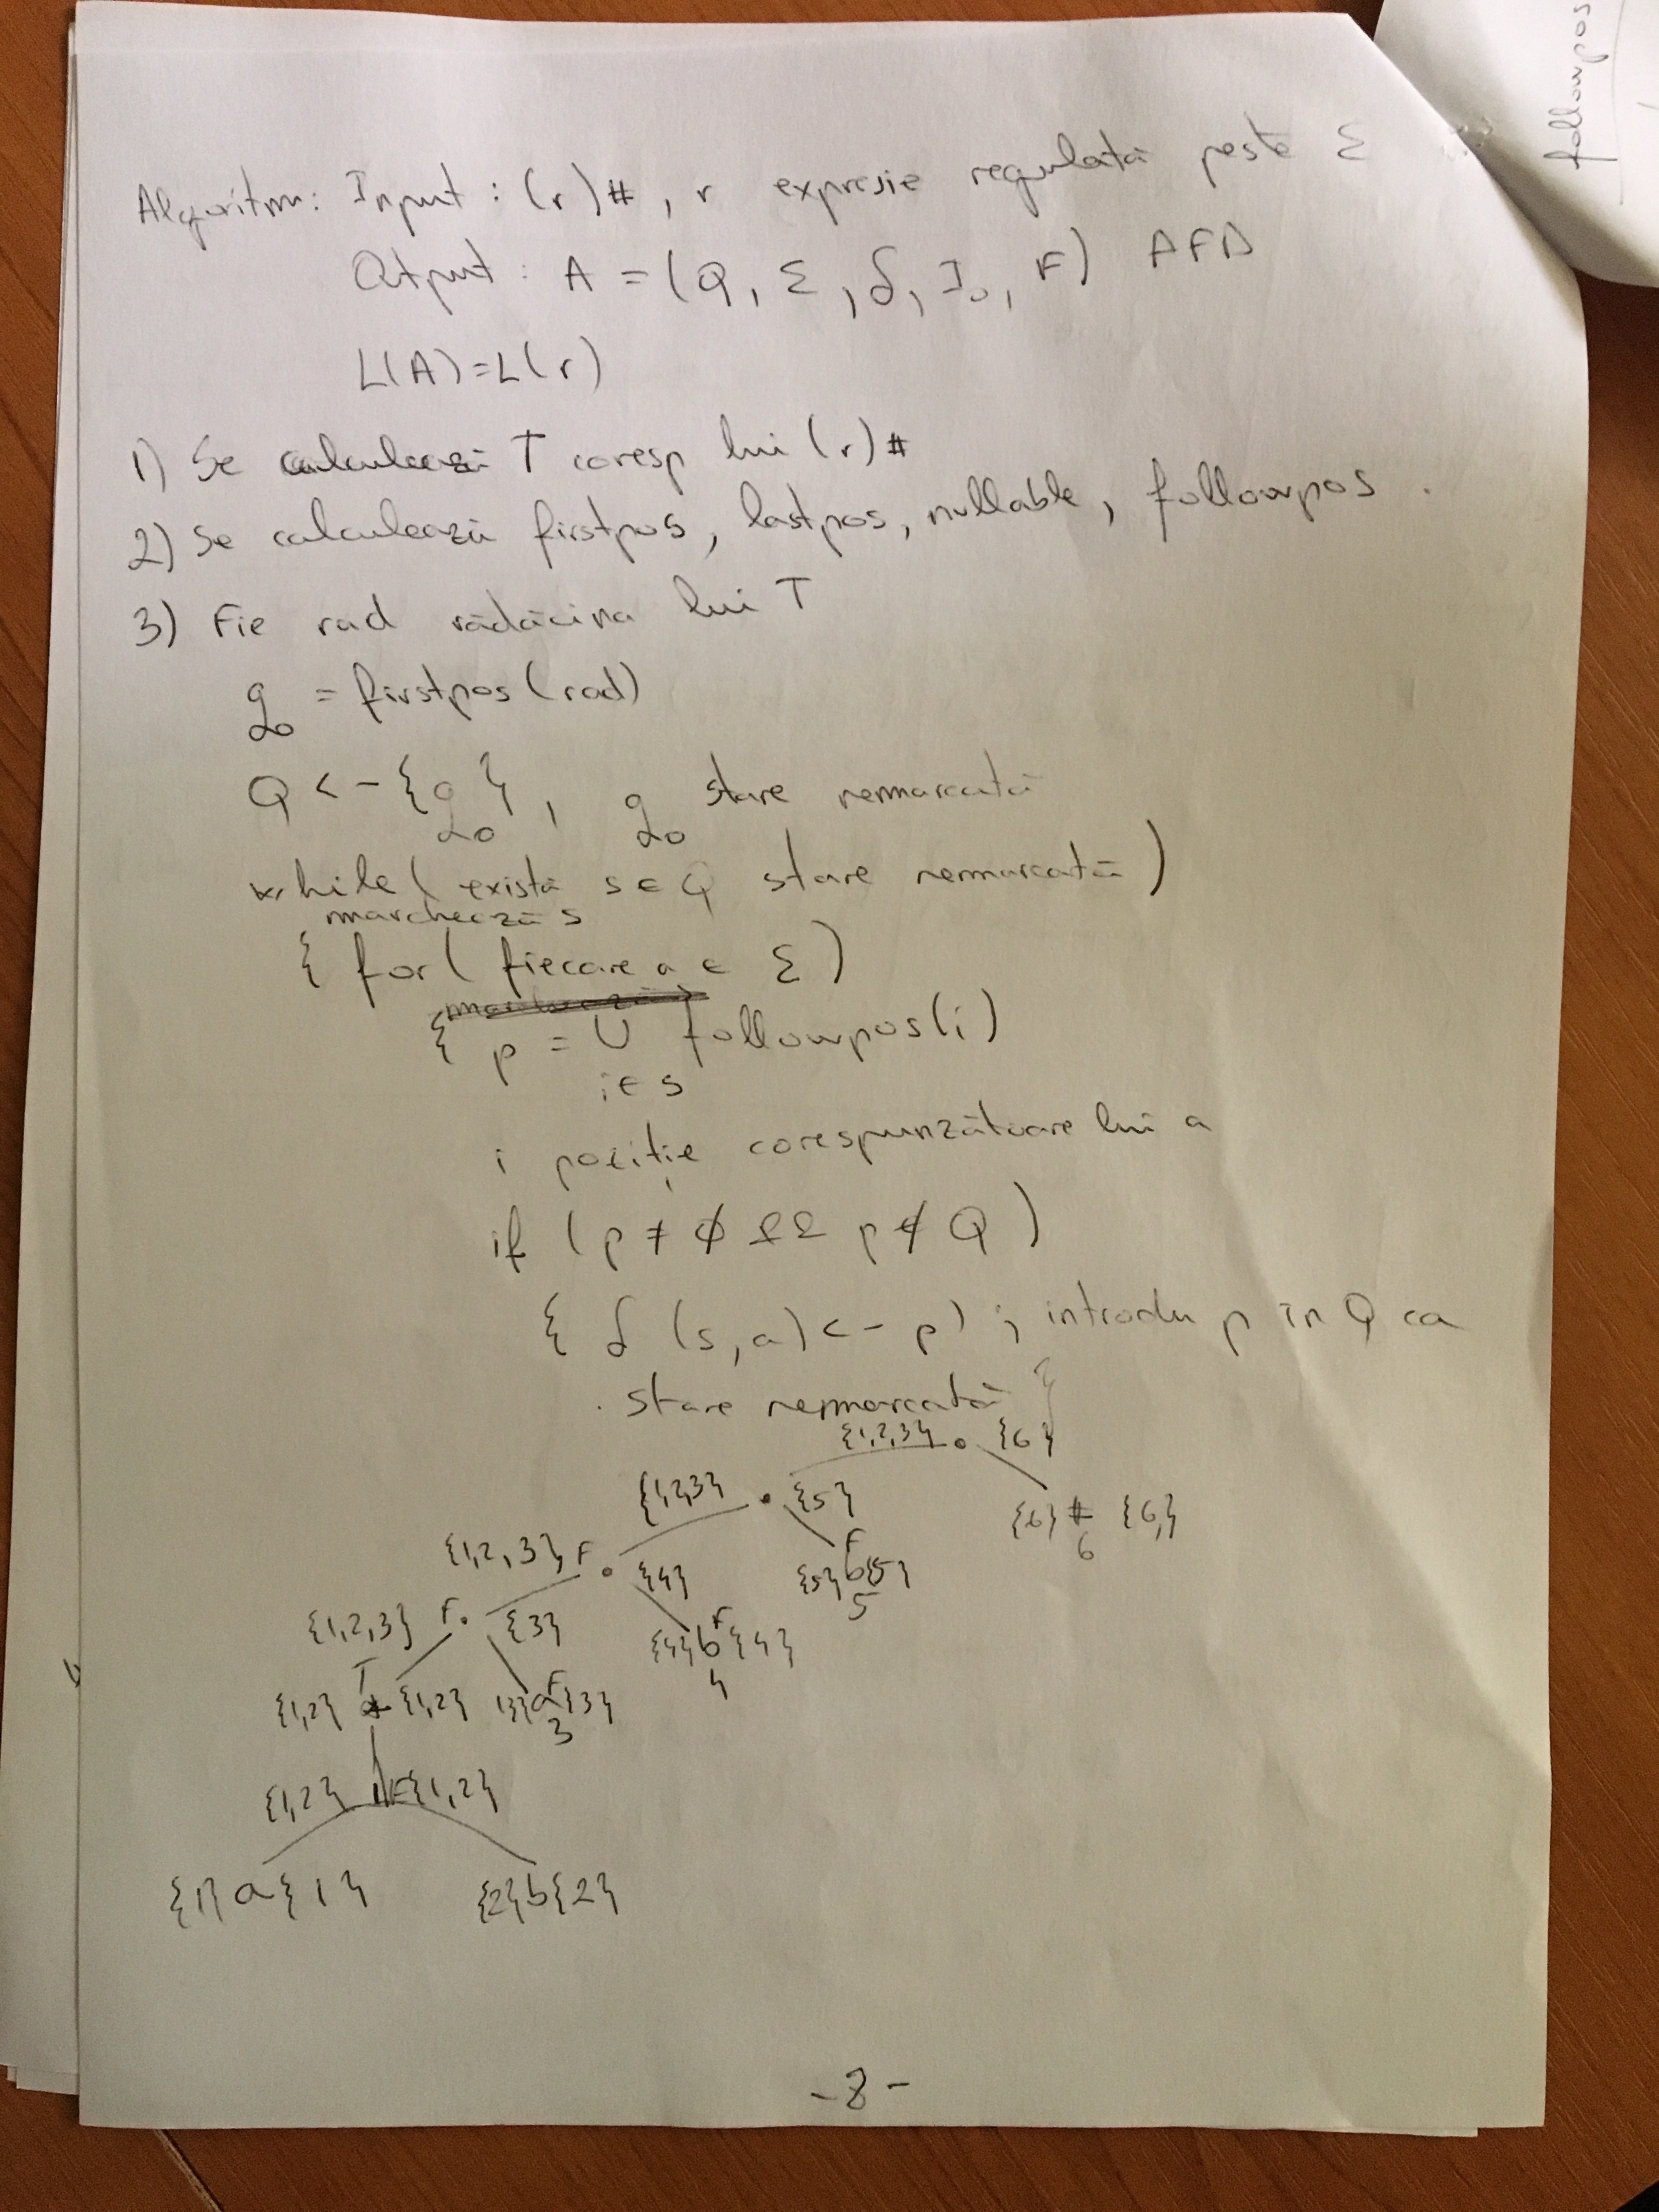 followpos
Algoritm: Input : (r)#, r expresie regulată peste Σ
Output : A = (Q, Σ, δ, I₀, F) AFD
L(A)=L(r)
1) Se calculează T coresp lui (r)#
2) Se calculează firstpos, lastpos, nullable, followpos.
3) Fie rad rădăcina lui T
q₀ = firstpos(rad)
Q <- {q₀}, q₀ stare nemarcată
while( există s ∈ Q stare nemarcată)
marchează s
{ for( fiecare a ∈ Σ)
{ p = ∪ followpos(i)
i ∈ s
i poziție corespunzătoare lui a
if (p ≠ ∅ && p ∉ Q)
{ δ (s,a) <- p) ; introdu p în Q ca
stare nemarcată }
{1,2,3} . {6}
{1,2,3} . {5} {6} # {6}
6
{1,2,3} F . {4} {5} b F {5}
5
{1,2,3} F . {3} {4} b F {4}
4
{1,2} T * {1,2} {3} a F {3}
3
{1,2} | F {1,2}
{1} a {1} {2} b {2}
-8-